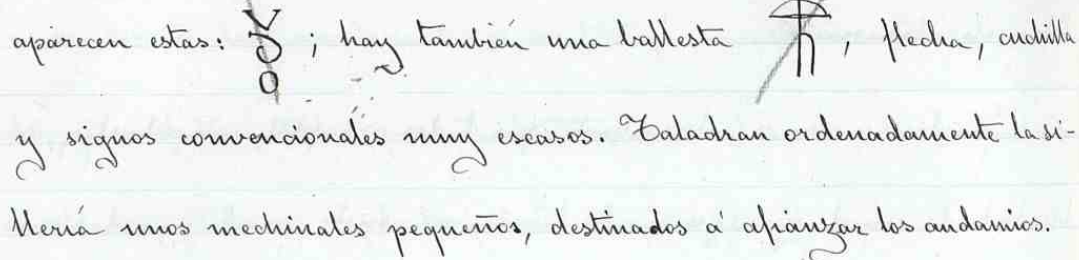 aparecen estas: V O O; hay también una ballesta , flecha, cuchilla
y signos convencionales muy escasos. Taladran ordenadamente la si-
llería unos mechinales pequeños, destinados á afianzar los andamios.